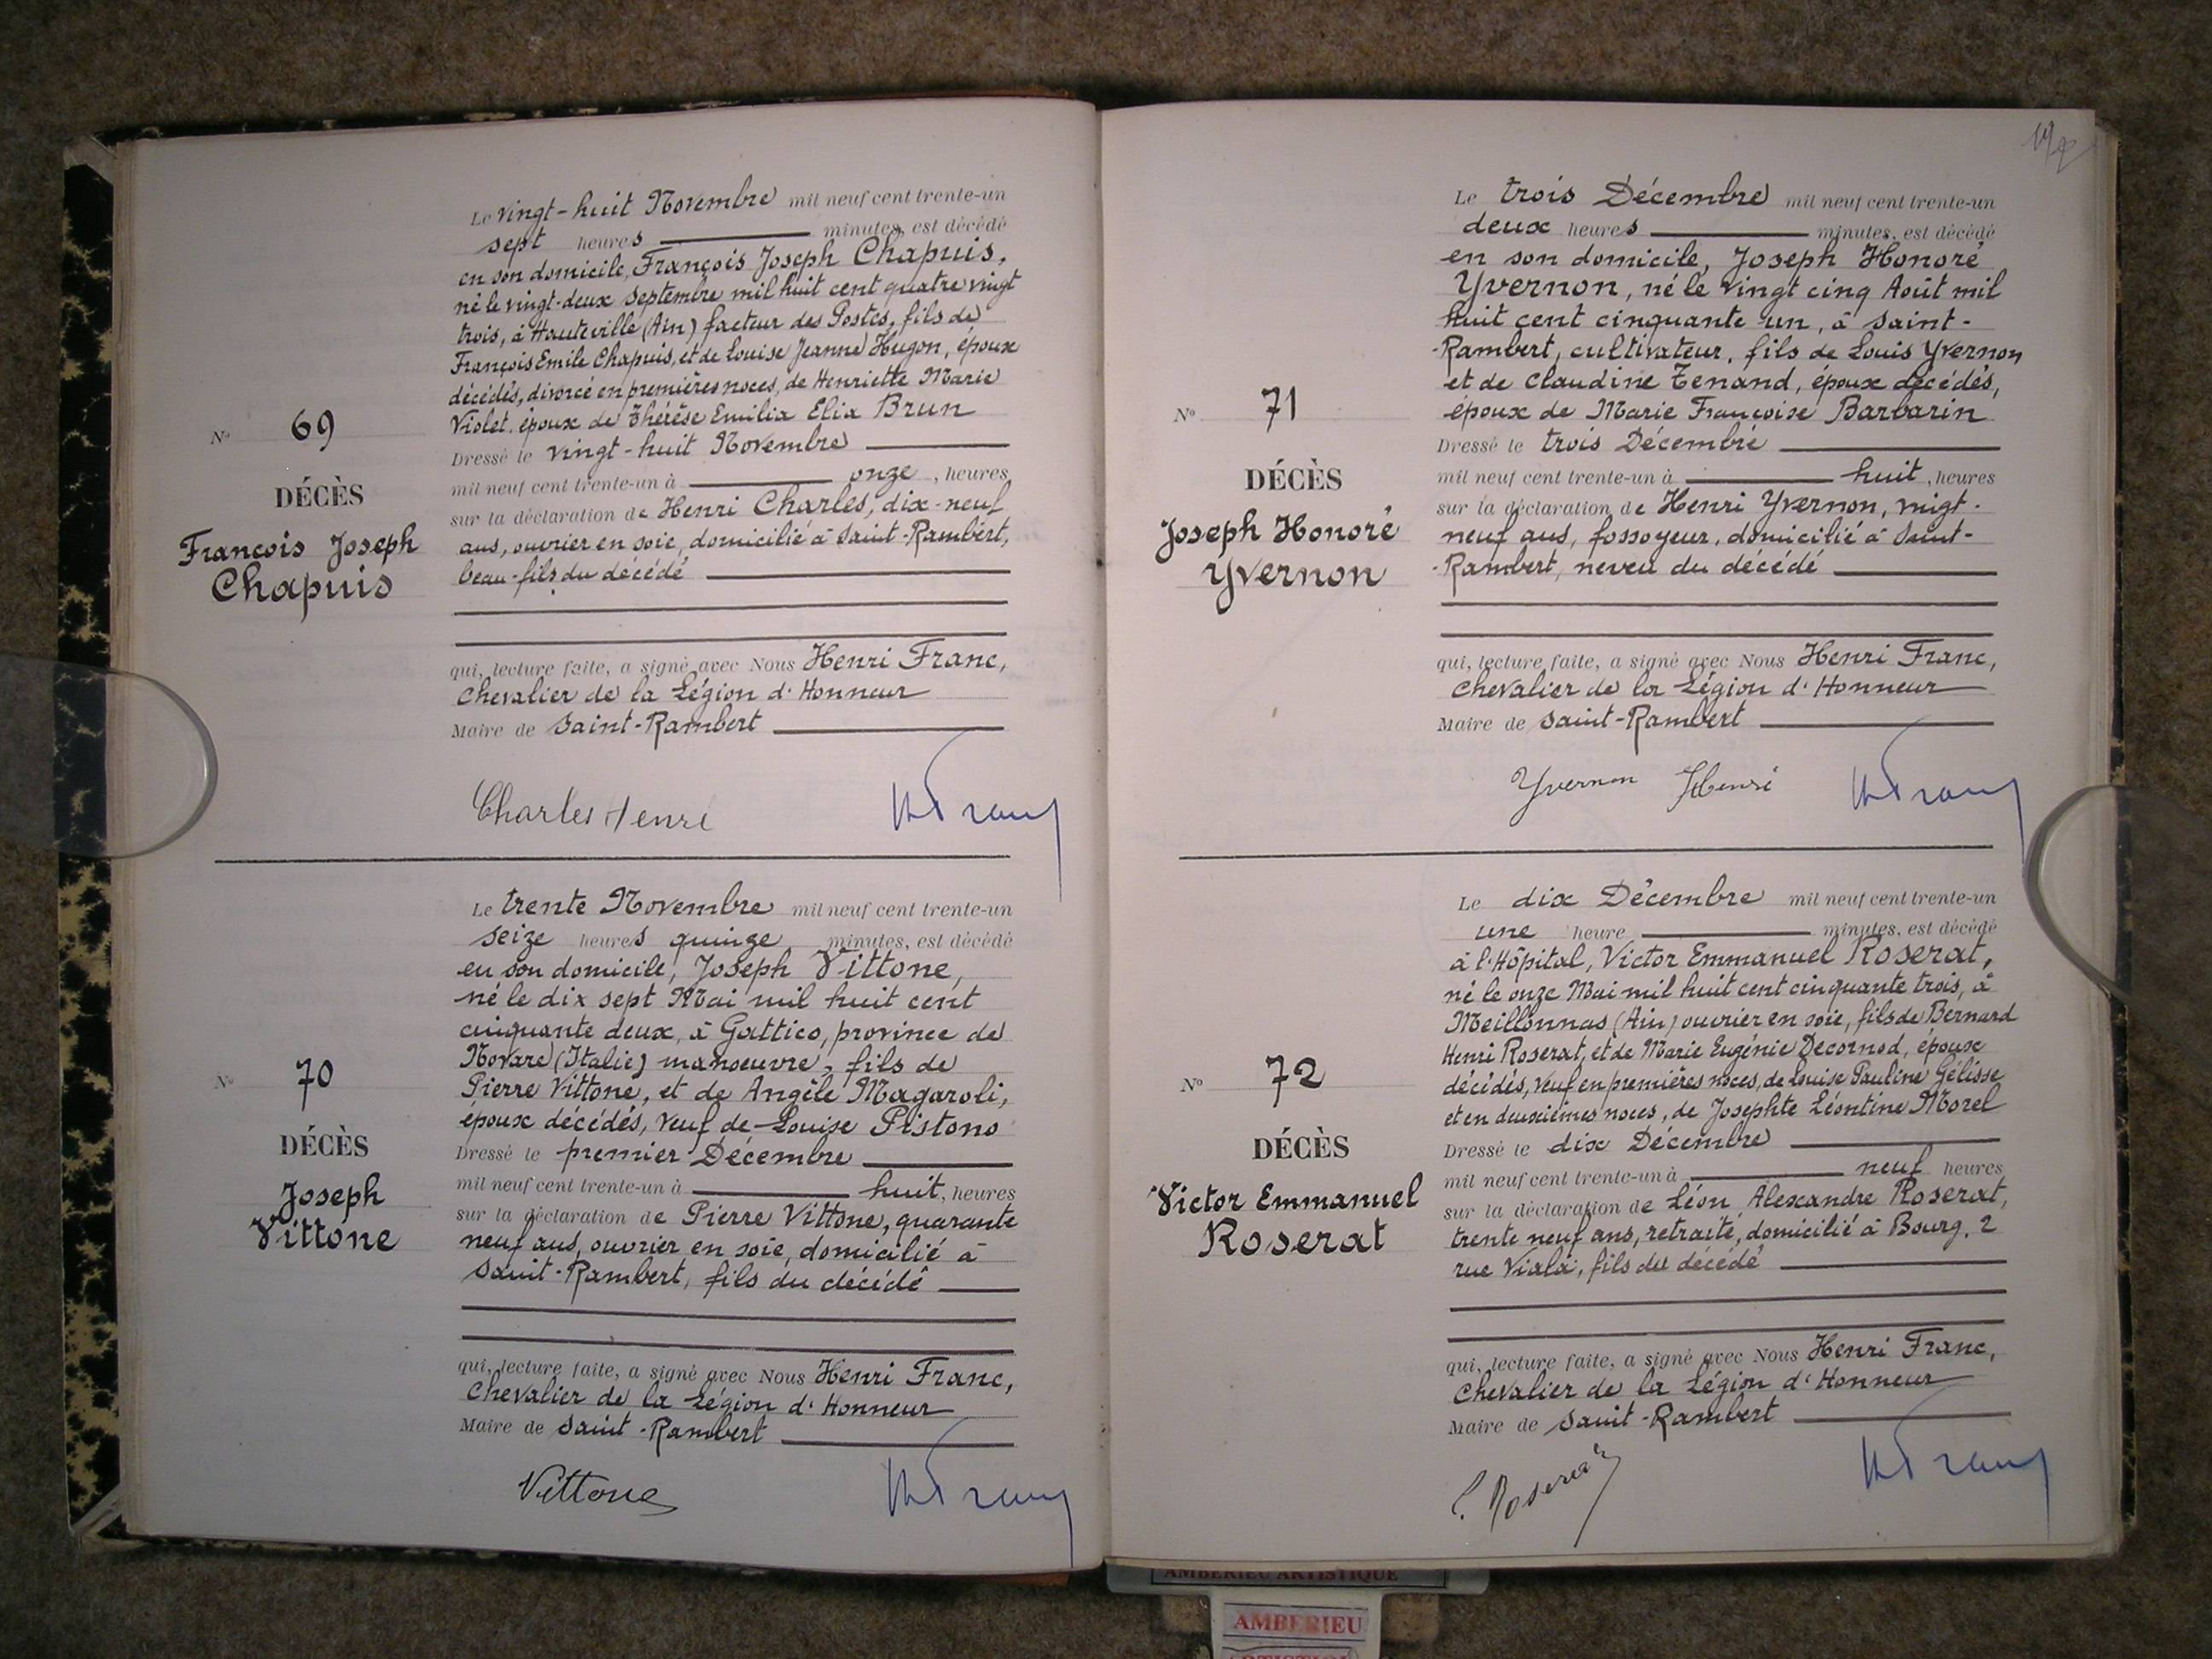 Le vingt-huit Novembre mil neuf cent trente-un
sept heures minutes, est décédé
en son domicile, François Joseph Chapuis,
né le vingt-deux Septembre mil huit cent quatre vingt
trois, à Hauteville (Ain) facteur des Postes, fils de
François Emile Chapuis, et de Louise Jeanne Hugon, époux
décédés, divorcé en premières noces, de Henriette Marie
Violet, époux de Thérèse Emilia Elia Brun
N° 69
Dressé le vingt-huit Novembre
mil neuf cent trente-un à onze, heures
DÉCÈS
sur la déclaration de Henri Charles, dix-neuf
François Joseph
Chapuis
ans, ouvrier en soie, domicilié à Saint-Rambert,
beau-fils du décédé
qui, lecture faite, a signé avec Nous Henri Franc,
Chevalier de la Légion d'Honneur
Maire de Saint-Rambert
Charles Henri
Le trente Novembre mil neuf cent trente-un
seize heures quinze minutes, est décédé
en son domicile, Joseph Vittone,
né le dix sept Mai mil huit cent
cinquante deux, à Gattico, province de
Novare (Italie) manoeuvre, fils de
N° 70
Pierre Vittone, et de Angèle Magaroli,
époux décédés, veuf de Louise Pistono
DÉCÈS
Dressé le premier Décembre
mil neuf cent trente-un à huit, heures
Joseph
Vittone
sur la déclaration de Pierre Vittone, quarante
neuf ans, ouvrier en soie, domicilié à
Saint-Rambert, fils du décédé
qui, lecture faite, a signé avec Nous Henri Franc,
Chevalier de la Légion d'Honneur
Maire de Saint-Rambert
Vittone
Le trois Décembre mil neuf cent trente-un
deux heures minutes, est décédé
en son domicile, Joseph Honoré
Yvernon, né le vingt cinq Août mil
huit cent cinquante un, à Saint-
-Rambert, cultivateur, fils de Louis Yvernon
et de Claudine Tenand, époux décédés,
N° 71
époux de Marie Françoise Barbarin
Dressé le trois Décembre
DÉCÈS
mil neuf cent trente-un à huit, heures
sur la déclaration de Henri Yvernon, vingt-
Joseph Honoré
Yvernon
neuf ans, fossoyeur, domicilié à Saint-
-Rambert, neveu du décédé
qui, lecture faite, a signé avec Nous Henri Franc,
Chevalier de la Légion d'Honneur
Maire de Saint-Rambert
Yvernon Henri
Le dix Décembre mil neuf cent trente-un
une heure minutes, est décédé
à l'Hôpital, Victor Emmanuel Roserat,
né le onze Mai mil huit cent cinquante trois, à
Meillonnas (Ain) ouvrier en soie, fils de Bernard
Henri Roserat, et de Marie Eugénie Decornod, époux
N° 72
décédés, veuf en premières noces, de Louise Pauline Gélisse
et en deuxièmes noces, de Josephte Léontine Morel
DÉCÈS
Dressé le dix Décembre
mil neuf cent trente-un à neuf heures
Victor Emmanuel
Roserat
sur la déclaration de Léon Alexandre Roserat,
trente neuf ans, retraité, domicilié à Bourg, 2
rue Viala, fils du décédé
qui, lecture faite, a signé avec Nous Henri Franc,
Chevalier de la Légion d'Honneur
Maire de Saint-Rambert
AMBERIEU ARTISTIQUE
AMBERIEU